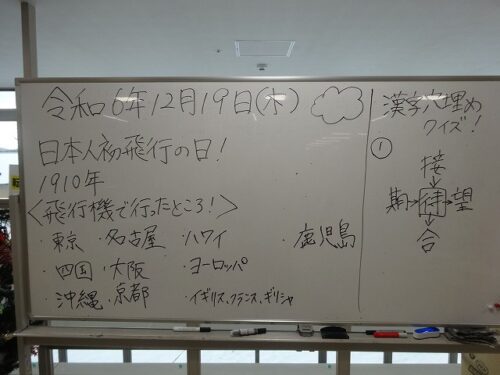 令和6年12月19日(木)
日本人初飛行の日!
1910年
<飛行機で行ったところ!>
・東京 ・名古屋 ・ハワイ ・鹿児島
・四国 ・大阪 ・ヨーロッパ
・沖縄 ・京都 ・イギリス、フランス、ギリシャ
漢字穴埋め
クイズ!
①
接
↓
期→待→望
↓
合